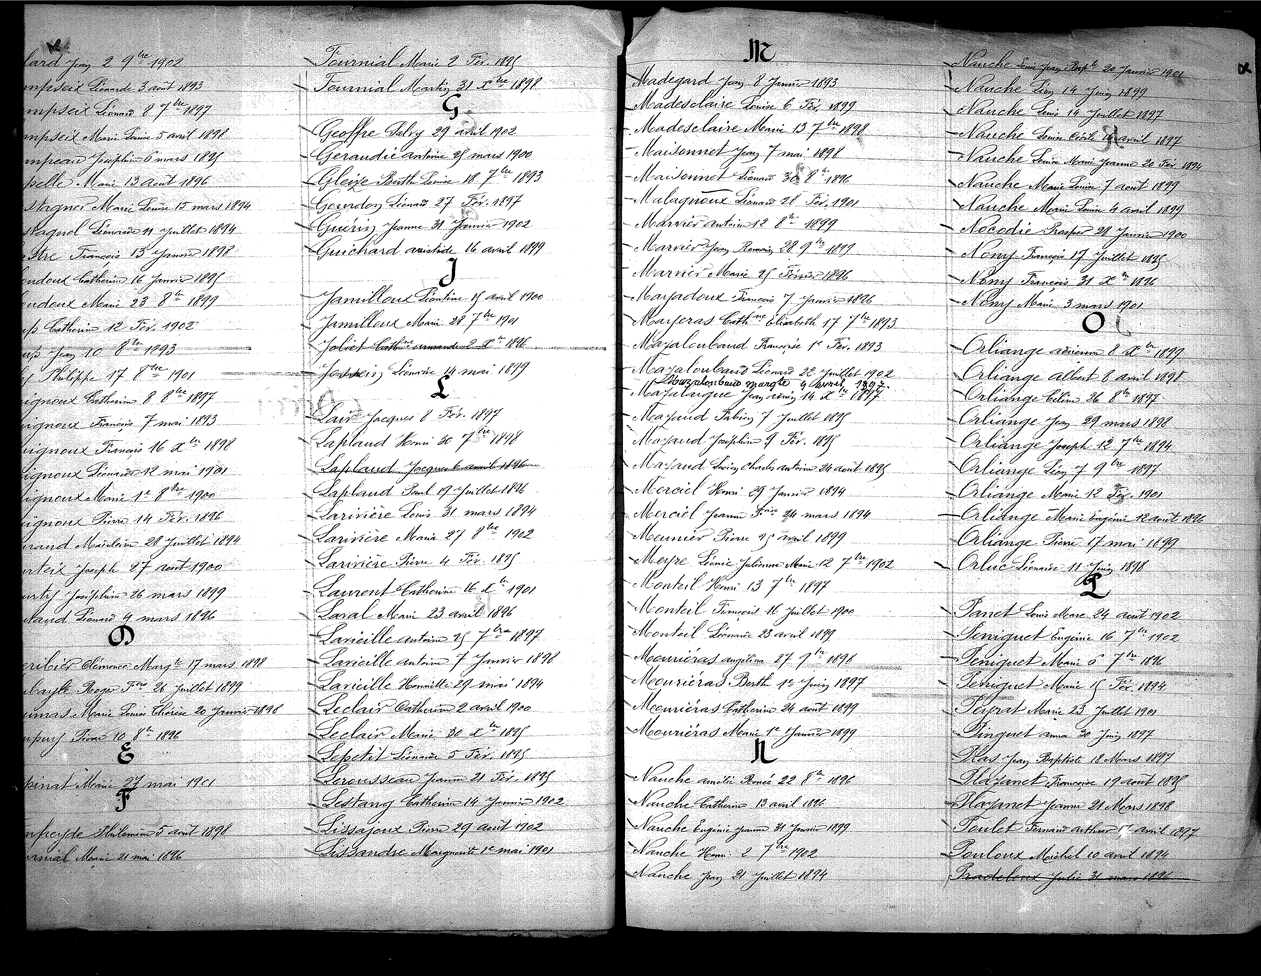 lard Jean 2 9bre 1902
mpseix Léonarde 3 août 1893
mpseix Léonard 8 7bre 1897
mpseix Marie Louise 5 avril 1898
mpeau Joséphine 6 mars 1895
pelle Marie 13 août 1896
stagner Marie Louise 15 mars 1894
stagnol Léonarde 11 Juillet 1894
stre François 13 Janvier 1898
oudoux Catherine 16 Janvier 1895
oudoux Marie 23 8bre 1899
Catherine 12 Fév. 1902
Jean 10 8bre 1893
Philippe 17 8bre 1901
ignoux Catherine 8 8bre 1897
ignoux François 7 mai 1893
ignoux François 16 Xbre 1898
ignoux Léonard 12 mai 1901
ignoux Marie 1er 8bre 1900
ignoux Pierre 14 Fév. 1896
raud Madeleine 28 Juillet 1894
rteix Joseph 27 août 1900
Joséphine 26 mars 1899
taud Léonard 9 mars 1896
D
Clémence Margte 17 mars 1898
Roger Fois 26 Juillet 1899
umas Marie Louise Thérèse 20 Janvier 1896
Pierre 10 8bre 1896
E
pinat Marie 27 mai 1901
F
Philomène 5 août 1898
rnial Marie 21 mai 1896
Fournial Marie 2 Fév. 1895
Fournial Martin 31 Xbre 1898
G
Geoffre Valry 29 avril 1902
Geraudie antoine 25 mars 1900
Gleize Berthe Louise 18 7bre 1893
Gourdon Léonard 27 Fév. 1897
Guérin Jeanne 31 Janvier 1902
Guichard aristide 16 avril 1899
J
Jamilloux Léontine 15 avril 1900
Jamilloux Marie 28 7bre 1901
Joliet Cathne armande 2 Xbre 1896
Léonarde 14 mai 1899
L
Lair Jacques 8 Fév. 1897
Laplaud Henri 30 7bre 1898
Laplaud Jacques 6 avril 1896
Laplaud Paul 19 Juillet 1896
Larivière Louis 31 mars 1894
Larivière Marie 27 8bre 1902
Larivière Pierre 4 Fév. 1895
Laurent Catherine 16 Xbre 1901
Laval Marie 23 avril 1896
Lavieille antoine 25 7bre 1897
Lavieille antoine 7 Janvier 1898
Lavieille Henriette 29 mai 1894
Leclair Catherine 2 avril 1900
Leclair Marie 30 Xbre 1895
Lepetit Léonarde 5 Fév. 1895
Lerousseau Jeanne 21 Fév. 1895
Lestang Catherine 14 Janvier 1902
Lissajoux Pierre 29 août 1902
Lissandre Marguerite 1er mai 1901
M
Madegard Jean 8 Janvier 1893
Madesclaire Louise 6 Fév. 1899
Madesclaire Marie 13 7bre 1898
Maisonnet Jean 7 mai 1898
Maisonnet Léonard 30 8bre 1896
Malagnoux Léonard 28 Fév. 1901
Marnier antoine 12 8bre 1899
Marnier Jean Romain 28 9bre 1899
Marnier Marie 25 Février 1896
Mayadoux François 7 Janvier 1896
Mayeras Cathne Elisabeth 17 7bre 1893
Mazaloubaud Françoise 1er Fév. 1893
Mazaloubaud Léonard 22 Juillet 1902
Mazaloubaud Margte 4 avril 1897
Mazalaigue Jean rémy 14 Xbre 1897
Mazaud Fabien 7 Juillet 1895
Mazaud Joséphine 9 Fév. 1895
Mazaud Louis Charles antoine 24 août 1895
Merciel Henri 29 Janvier 1894
Merciel Jeanne Foise 24 mars 1894
Meunier Pierre 25 avril 1899
Meyre Léonie Julienne Marie 12 7bre 1902
Monteil Henri 13 7bre 1897
Monteil François 16 Juillet 1900
Monteil Léonarde 23 avril 1899
Mouriéras angelina 27 9bre 1898
Mouriéras Berthe 1er Juin 1897
Mouriéras Catherine 24 août 1899
Mouriéras Marie 1er Janvier 1899
N
Nauche amélie Renée 22 8bre 1896
Nauche Catherine 13 avril 1896
Nauche Eugénie Jeanne 31 Janvier 1899
Nauche Henri 2 7bre 1902
Nauche Jean 21 Juillet 1894
Nauche Louis Jean Bapte 20 Janvier 1901
Nauche Léon 14 Juin 1899
Nauche Louis 14 Juillet 1897
Nauche Louise Cécile 14 avril 1897
Nauche Louise Marie Jeanne 20 Fév. 1894
Nauche Marie Louise 7 août 1899
Nauche Marie Louise 4 avril 1899
Nocodie Prosper 28 Janvier 1900
Nony François 17 Juillet 1895
Nony François 31 Xbre 1896
Nony Marie 3 mars 1901
O
Orliange adrienne 8 Xbre 1899
Orliange albert 8 avril 1898
Orliange Célina 26 8bre 1897
Orliange Jean 29 mars 1898
Orliange Joseph 12 7bre 1894
Orliange Léon 7 9bre 1897
Orliange Marie 12 Fév. 1901
Orliange Marie Eugénie 12 août 1896
Orliange Pierre 17 mai 1899
Orluc Léonarde 11 Juin 1898
P
Panet Louis Marc 24 août 1902
Peniguet Eugénie 16 7bre 1902
Peniguet Marie 6 7bre 1896
Peniguet Marie 15 Fév. 1894
Peyrat Marie 23 Juillet 1901
Pinguet anna 30 Juin 1897
Plas Jean Baptiste 18 Mars 1897
Plazanet Françoise 19 août 1895
Plazanet Jeanne 21 Mars 1898
Poulet Fernand arthur 1er avril 1897
Pouloux Michel 10 avril 1894
Pradeloux Julie 31 mars 1896